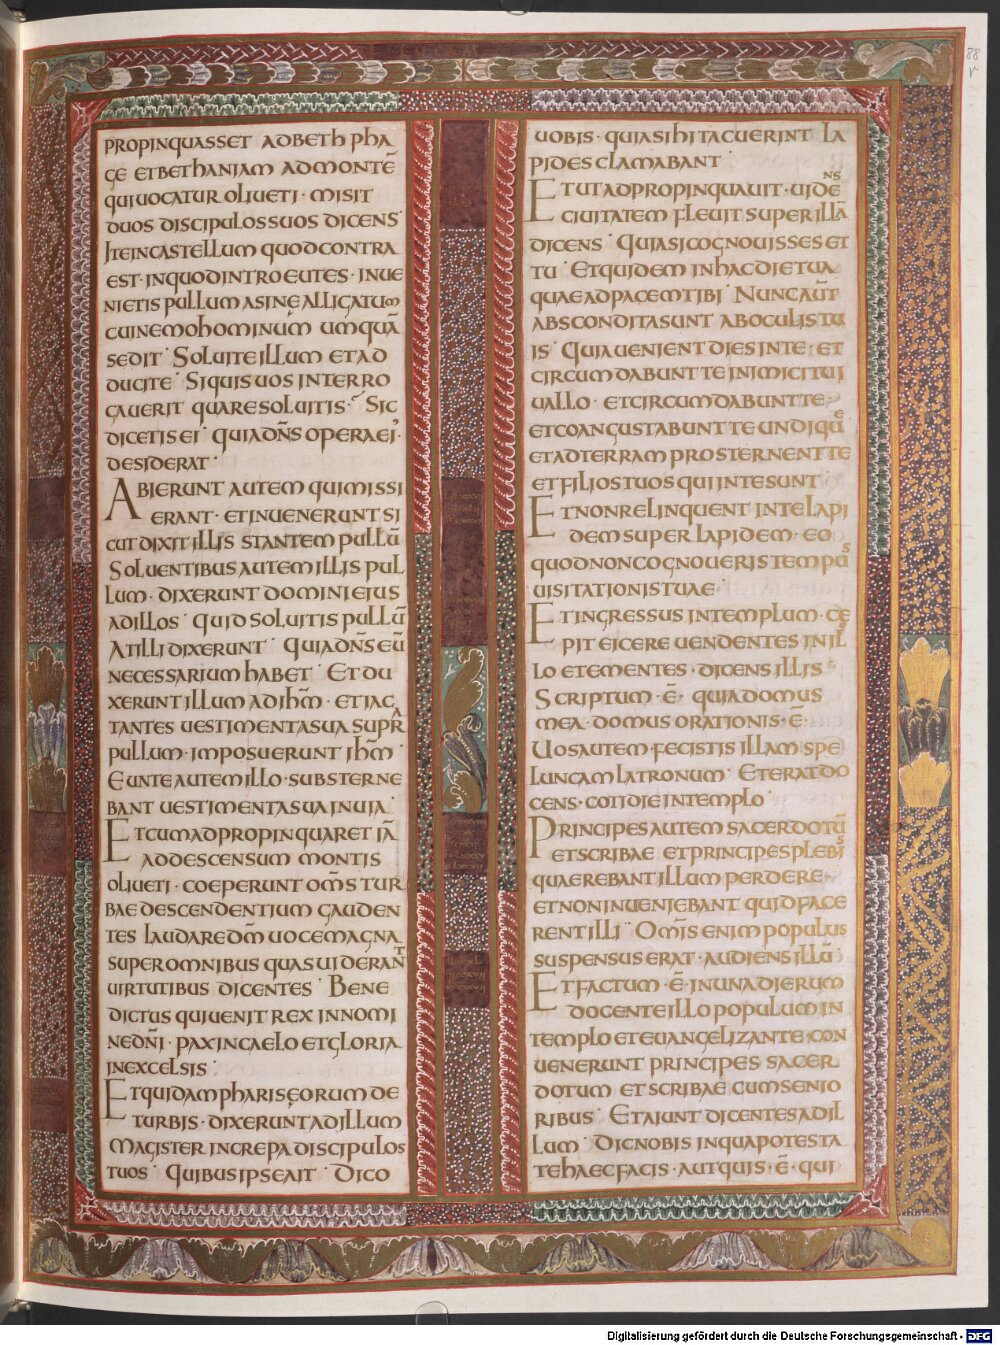 PROPINQUASSET ADBETHPHA
GE ETBETHANIAM ADMONTĒ
QUIUOCATUR OLIUETI · MISIT
DUOS DISCIPULOS SUOS DICENS·
ITEINCASTELLUM QUODCONTRA
EST· INQUODINTROEUTES· INUE
NIETIS PULLUM ASINE ALLIGATUM
CUINEMOHOMINUM UMQUĀ
SEDIT· SOLUITE ILLUM ETAD
DUCITE· SIQUIS UOS INTERRO
GAUERIT QUARE SOLUITIS· SIC
DICETIS EI QUIADN̄S OPERA EI·
DESIDERAT·
ABIERUNT AUTEM QUIMISSI
ERANT· ETINUENERUNT SI
CUT DIXIT ILLIS STANTEM PULLŪ
SOLUENTIBUS AUTEM ILLIS PUL
LUM· DIXERUNT DOMINI EIUS
ADILLOS· QUID SOLUITIS PULLŪ
ATILLI DIXERUNT· QUIADN̄S EŪ
NECESSARIUM HABET· ETDU
XERUNT ILLUM ADIHM̄· ETIAC
TANTES UESTIMENTA SUA SUPRA
PULLUM· IMPOSUERUNT IHM̄·
EUNTE AUTEM ILLO· SUBSTERNE
BANT UESTIMENTA SUA INUIA·
ETCUMADPROPINQUARET IĀ
ADDESCENSUM MONTIS
OLIUETI· COEPERUNT OM̄S TUR
BAE DESCENDENTIUM GAUDEN
TES LAUDARE DM̄ UOCEMAGNA
SUPER OMNIBUS QUAS UIDERANT
UIRTUTIBUS DICENTES· BENE
DICTUS QUIUENIT REX INNOMI
NEDN̄I· PAXINCAELO ETGLORIA
INEXCELSIS·
ETQUIDAM PHARISEORUM DE
TURBIS· DIXERUNT ADILLUM
MAGISTER INCREPA DISCIPULOS
TUOS· QUIBUS IPSE AIT· DICO
UOBIS· QUIASIHI TACUERINT LA
PIDES CLAMABANT·
ETUTADPROPINQUAUIT· UIDENS
CIUITATEM FLEUIT SUPER ILLĀ
DICENS· QUIASICOGNOUISSES ET
TU· ETQUIDEM INHACDIETUA
QUAE ADPACEM TIBI· NUNC AUT̄
ABSCONDITA SUNT ABOCULIS TU
IS· QUIA UENIENT DIES INTE· ET
CIRCUMDABUNT TE INIMICI TUI
UALLO· ETCIRCUMDABUNT TE
ETCOANGUSTABUNT TE UNDIQUE
ETADTERRAM PROSTERNENT TE
ETFILIOS TUOS QUI INTE SUNT·
ETNONRELINQUENT INTE LAPI
DEM SUPER LAPIDEM· EO
QUOD NONCOGNOUERIS TEMPUS
UISITATIONIS TUAE·
ETINGRESSUS INTEMPLUM· CE
PIT EICERE UENDENTES INIL
LO ETEMENTES· DICENS ILLIS·
SCRIPTUM· Ē· QUIA DOMUS
MEA· DOMUS ORATIONIS· Ē·
UOS AUTEM· FECISTIS ILLAM SPE
LUNCAM LATRONUM· ETERAT DO
CENS· COTIDIE INTEMPLO·
PRINCIPES AUTEM SACERDOTŪ
ETSCRIBAE ETPRINCIPES PLEBIS
QUAEREBANT ILLUM PERDERE·
ETNON INUENIEBANT QUID FACE
RENT ILLI· OMIS ENIM POPULUS
SUSPENSUS ERAT· AUDIENS ILLŪ·
ETFACTUM· Ē· INUNA DIERUM
DOCENTE ILLO POPULUM IN
TEMPLO ETEUANGELIZANTE· CON
UENERUNT PRINCIPES SACER
DOTUM ETSCRIBAE CUMSENIO
RIBUS· ETAIUNT DICENTES ADIL
LUM· DICNOBIS INQUA POTESTA
TE HAEC FACIS· AUTQUIS· Ē· QUI
88
r
Digitalisierung gefördert durch die Deutsche Forschungsgemeinschaft - DFG